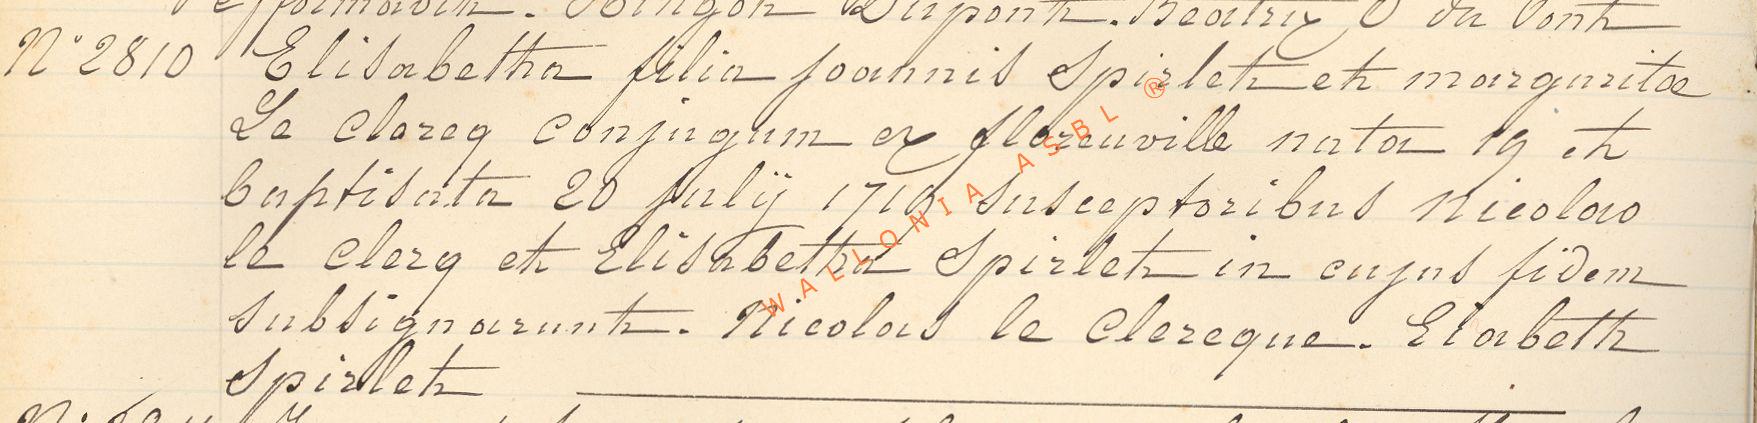 Dupont. Beatrix du Pont
N° 2810 Elisabetha filia Joannis Spirlet et margaritæ
Le clercq conjugum ex florenville nata 19 et
baptisata 20 julÿ susceptoribus Nicolao
le clerq et Elisabetha Spirlet in cujus fidem
subsignarunt. Nicolas le Clercque. Elabeth
Spirlet
WALLONIA ASBL ®